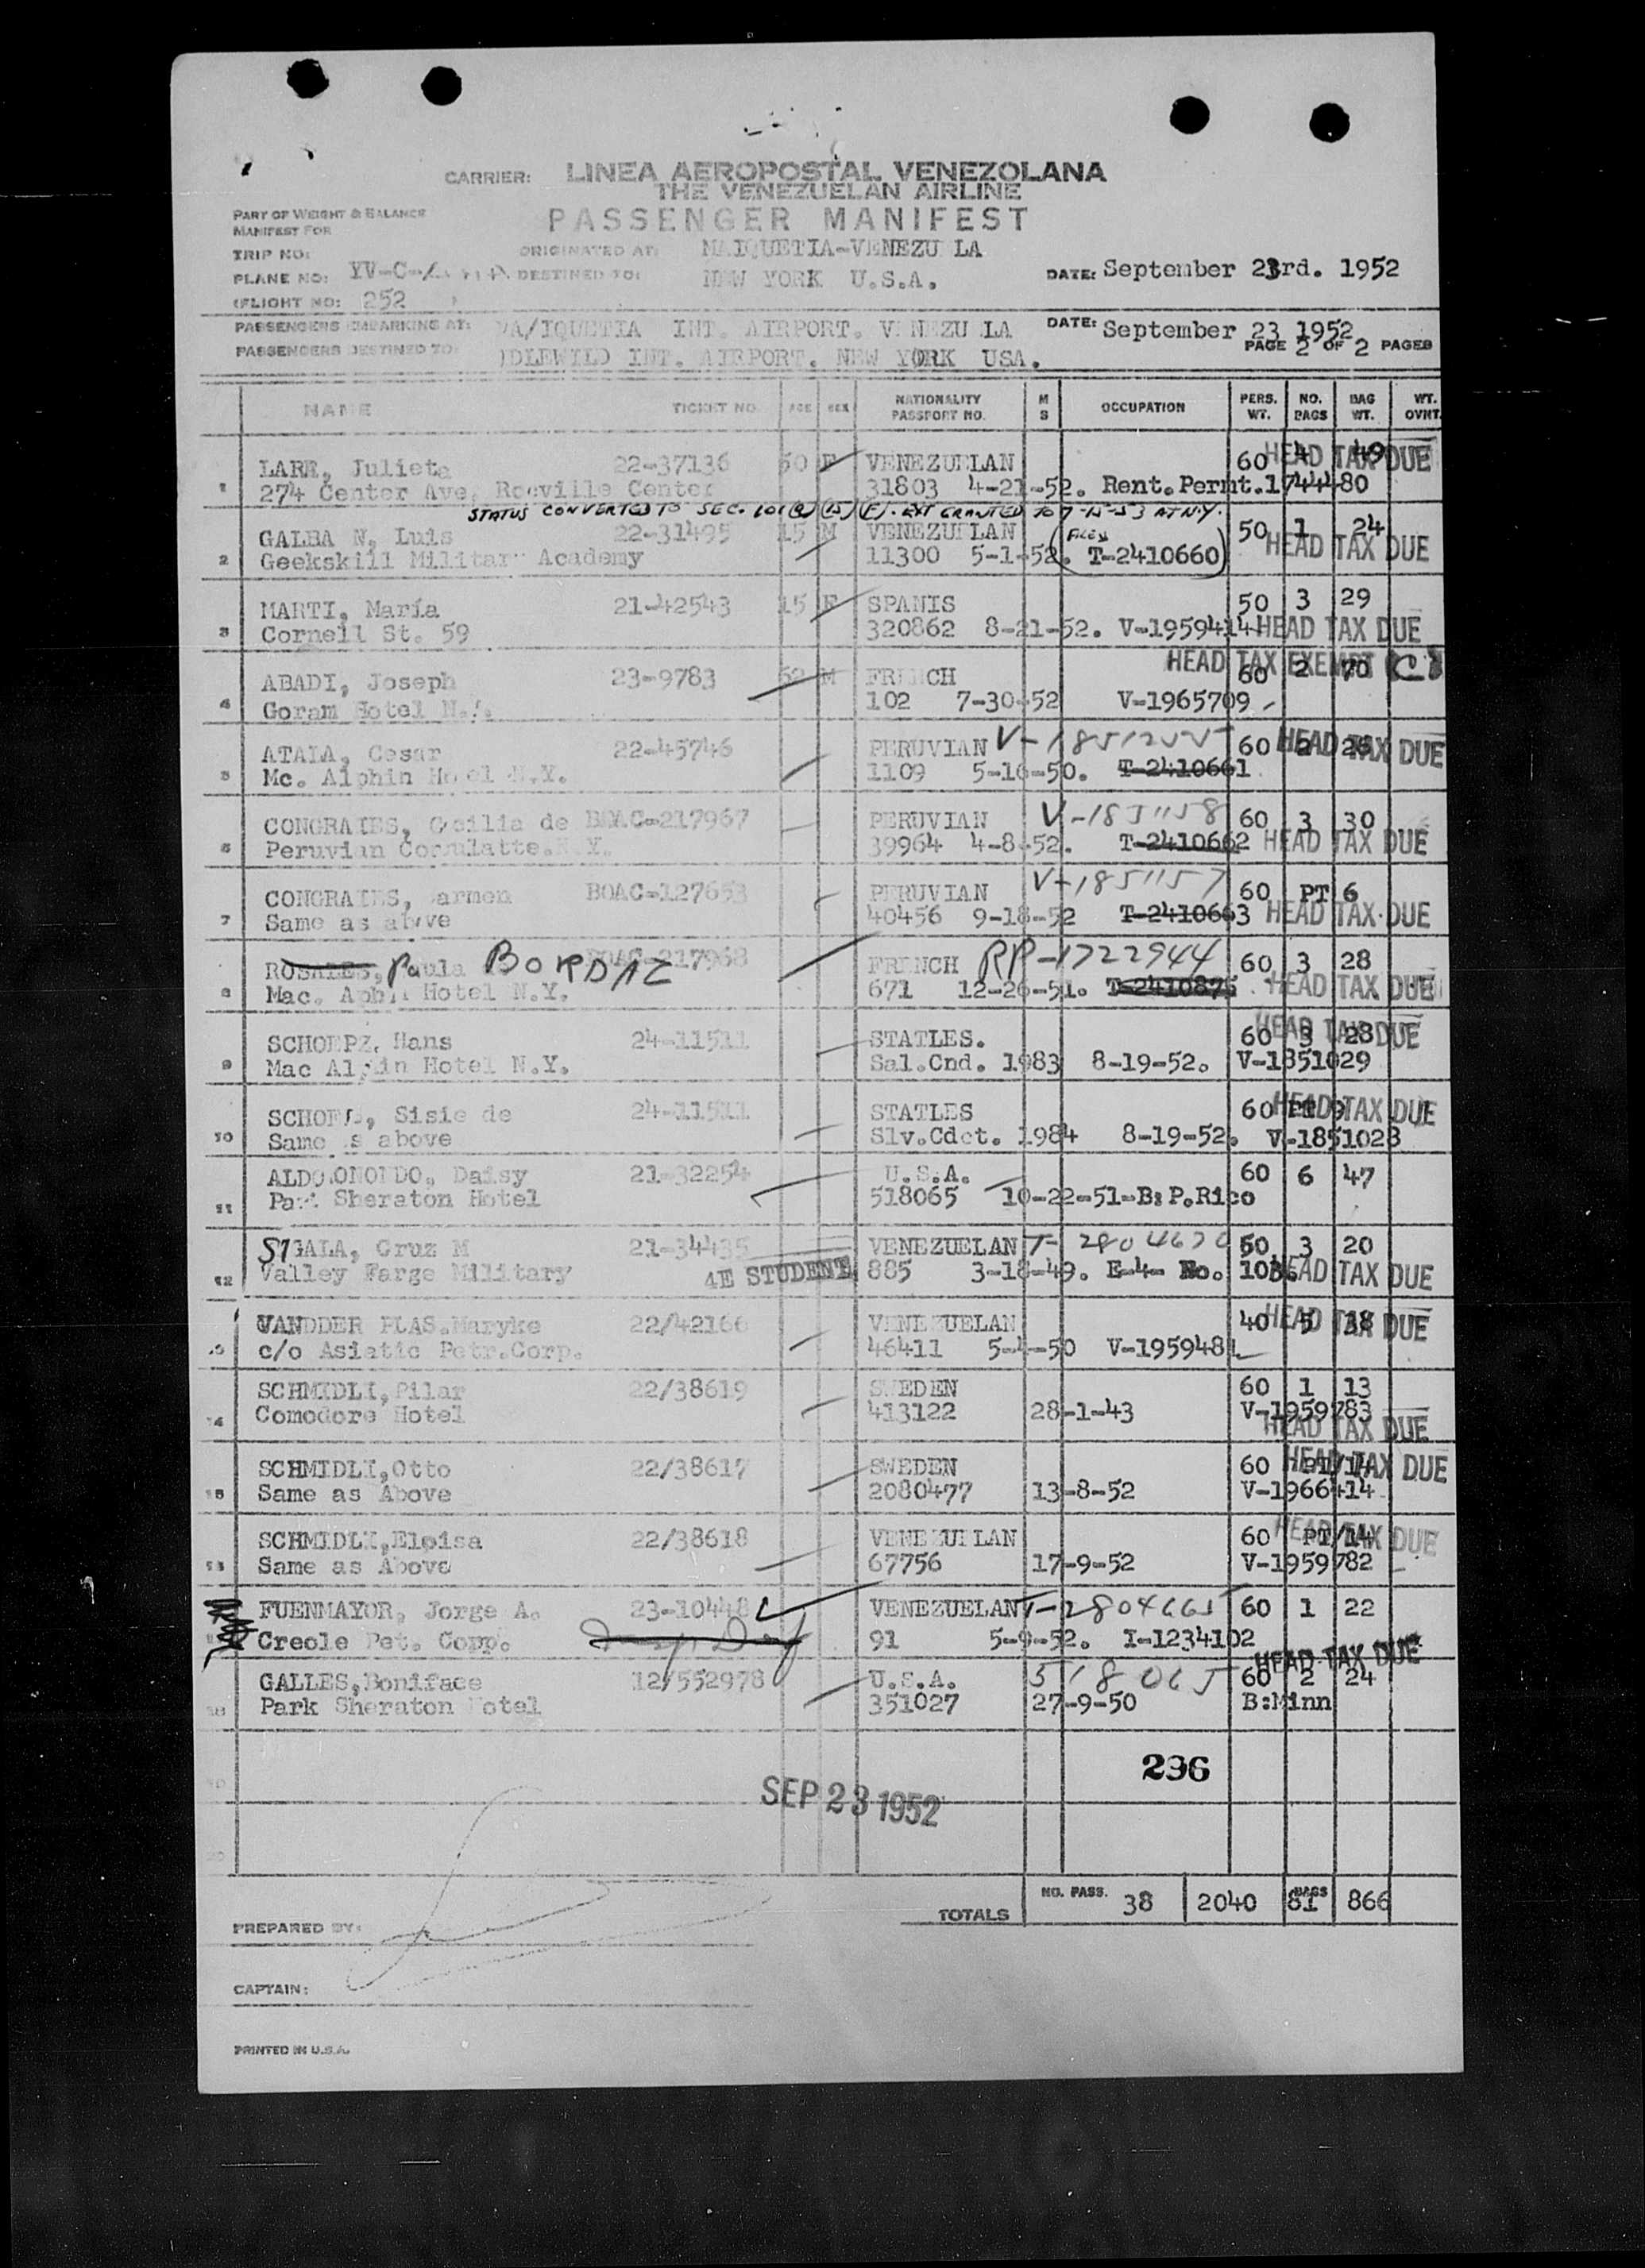 CARRIER: LINEA AEROPOSTAL VENEZOLANA
THE VENEZUELAN AIRLINE
PART OF WEIGHT & BALANCE
MANIFEST FOR
PASSENGER MANIFEST
TRIP NO: ORIGINATED AT: MAIQUETIA-VENEZU LA
PLANE NO: YV-C- DESTINED TO: NEW YORK U.S.A. DATE: September 23rd. 1952
(FLIGHT NO: 252 )
PASSENGERS EMBARKING AT: IQUETIA INT. AIRPORT. V NEZU LA DATE: September 23 1952
PAGE 2 OF 2 PAGES
PASSENGERS DESTINED TO: DLEWILD INT. AIRPORT. NEW YORK USA.
NAME TICKET NO. AGE SEX NATIONALITY PASSPORT NO. M S OCCUPATION PERS. WT. NO. BAGS BAG WT. WT. OVNT.
LARE, Julieta 22-37136 50 F VENEZUELAN 60 4 49 HEAD TAX DUE
1 274 Center Ave, Rocville Center 31803 4-21-52. Rent.Permt.1744480
STATUS CONVERTED TO SEC. 101(a)(15)(F). EXT GRANTED TO 7-15-53 AT N.Y.
GALBA N, Luis 22-31495 15 M VENEZUELAN 50 1 24
2 Geekskill Military Academy 11300 5-1-52. (T-2410660) HEAD TAX DUE
MARTI, María 21-42543 15 F SPANIS 50 3 29
3 Cornell St. 59 320862 8-21-52. V-1959414 HEAD TAX DUE
HEAD TAX EXEMPT
ABADI, Joseph 23-9783 52 M FRENCH 60 2 70
4 Goram Hotel N.Y. 102 7-30-52 V-1965709
ATALA, Cesar 22-45746 PERUVIAN 60 2 26 HEAD TAX DUE
5 Mc. Alphin Hotel N.Y. 1109 5-16-50. T-2410661
CONGRAIES, Cecilia de BOAC-217967 PERUVIAN V-1851158 60 3 30
6 Peruvian Consulatte.N.Y. 39964 4-8-52. T-2410662 HEAD TAX DUE
CONGRAIES, armen BOAC-127653 PERUVIAN V-1851157 60 PT 6
7 Same as above 40456 9-18-52 T-2410663 HEAD TAX DUE
ROSALES, Paula BORDAZ BOAC-217968 FRENCH RP-1722944 60 3 28
8 Mac. Aphi Hotel N.Y. 671 12-26-51. T-2410875 HEAD TAX DUE
SCHOEPZ, Hans 24-11511 STATLES. 60 3 28 HEAD TAX DUE
9 Mac Alfin Hotel N.Y. Sal.Cnd. 1983 8-19-52. V-1851029
SCHOE, Sisie de 24-11511 STATLES 60 PT 9 HEAD TAX DUE
10 Same s above Slv.Cdct. 1984 8-19-52. V-1851028
Daisy 21-32254 U.S.A. 60 6 47
11 Park Sheraton Hotel 518065 10-22-51-B: P.Rico
SIGALA, Cruz M 21-34435 VENEZUELAN T-2804670 50 3 20
12 Valley Farge Military 4E STUDENT 885 3-18-49. E-4- No. 1036 HEAD TAX DUE
VANDDER PLAS.Maryke 22/42166 VENEZUELAN 40 5 38 HEAD TAX DUE
c/o Asiatic Petr.Corp. 46411 5-4-50 V-1959481
SCHMIDLI, Pilar 22/38619 SWEDEN 60 1 13
14 Comodore Hotel 413122 28-1-43 V-1959783
HEAD TAX DUE
SCHMIDLI,Otto 22/38617 SWEDEN 60 PT/14 HEAD TAX DUE
15 Same as Above 2080477 13-8-52 V-1966414
SCHMIDLI,Eloisa 22/38618 VENEZUELAN 60 PT/14 HEAD TAX DUE
Same as Above 67756 17-9-52 V-1959782
FUENMAYOR, Jorge A. 23-10448 VENEZUELAN T-2804665 60 1 22
Creole Pet. Copp. 91 5-9-52. I-1234102
HEAD TAX DUE
GALLES,Boniface 12/552978 U.S.A. 518065 60 2 24
Park Sheraton Hotel 351027 27-9-50 B:Minn
296
SEP 23 1952
TOTALS NO. PASS. 38 2040 BAGS 81 866
PREPARED BY:
CAPTAIN:
PRINTED IN U.S.A.